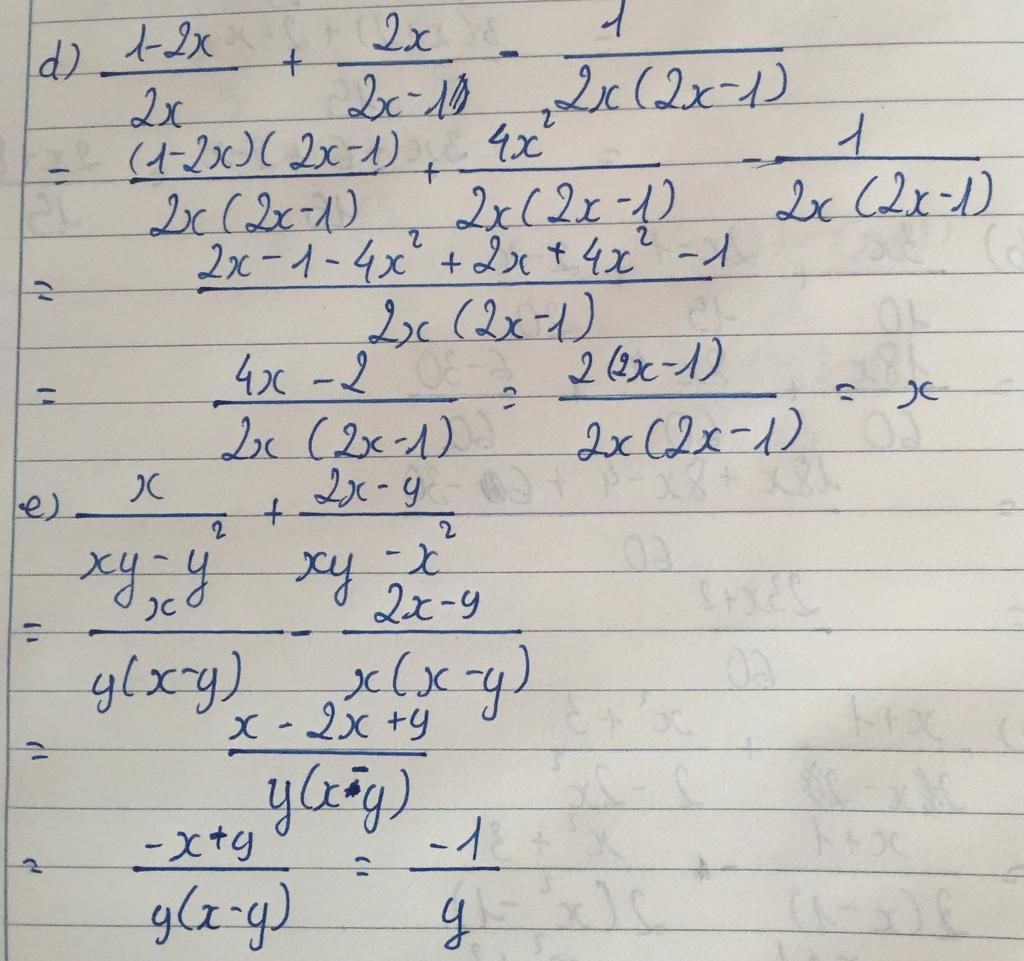 d) (1-2x)/(2x) + (2x)/(2x-1) - 1/(2x(2x-1))
= ((1-2x)(2x-1))/(2x(2x-1)) + (4x²)/(2x(2x-1)) - 1/(2x(2x-1))
= (2x-1-4x²+2x+4x²-1)/(2x(2x-1))
= (4x-2)/(2x(2x-1)) = (2(2x-1))/(2x(2x-1)) = x
e) x/(xy-y²) + (2x-y)/(xy-x²)
= x/(y(x-y)) - (2x-y)/(x(x-y))
= (x-2x+y)/(y(x-y))
= (-x+y)/(y(x-y)) = (-1)/y